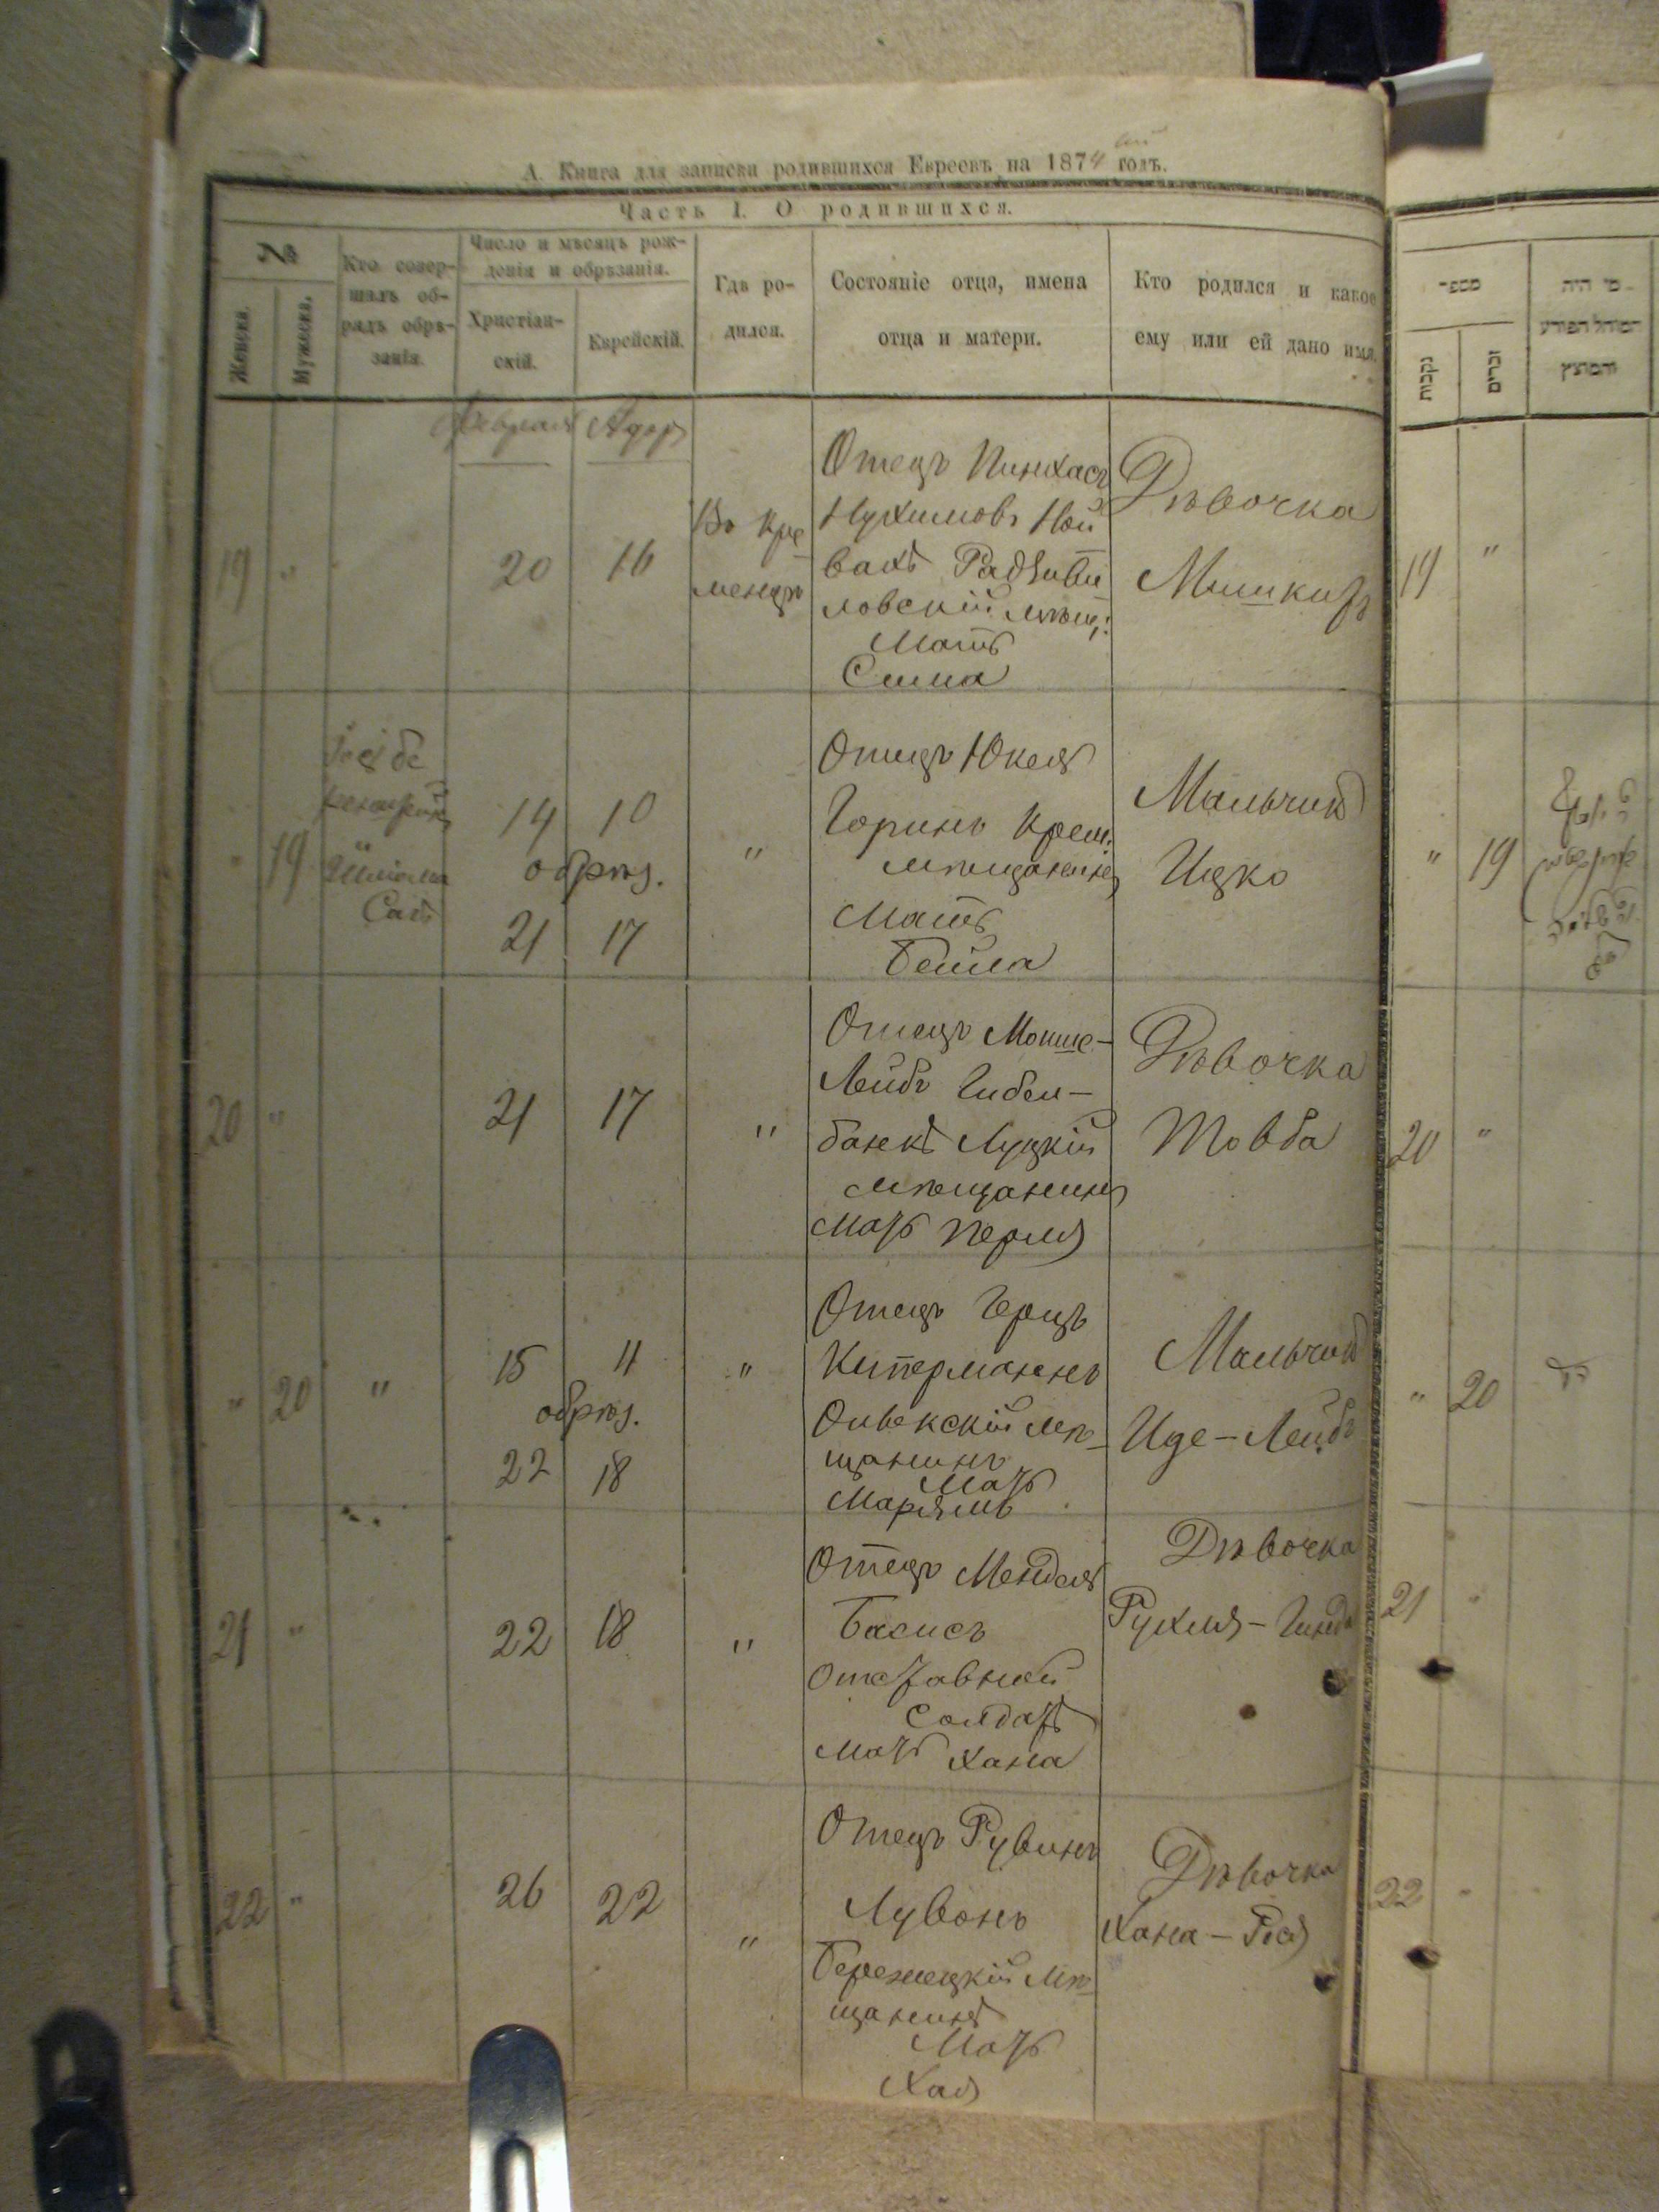 А. Книга для записи родившихся Евреевъ на 1874 годъ.
Часть I. О родившихся.
№
Женска.
Мужеска.
Кто совер-
шалъ об-
рядъ обрѣ-
занія.
Число и мѣсяцъ рож-
денія и обрѣзанія.
Христіан-
скій.
Еврейскій.
Гдѣ ро-
дился.
Состояніе отца, имена
отца и матери.
Кто родился и какое
ему или ей дано имя.
Февраля Адаръ
19 "
20 16
Въ Кре
менцѣ
Отецъ Пинхасъ
Нухимовъ Ной
вахъ Радзиви
ловскій мѣщ:
Мать
Сима
Дѣвочка
" 19
Сать
14 10
обрѣз.
21 17
"
Отецъ Юкель
Горинъ Крем.
мѣщанинъ
Мать
Бейла
Мальчикъ
Ицко
20 "
21 17
"
Отецъ Мошше-
Лейбъ
Луцкій
мѣщанинъ
Мать Перля
Дѣвочка
Товба
" 20 "
15 11
обрѣз.
22 18
"
Отецъ Герцъ
Китерманнъ
мѣ-
щанинъ
Мать
Марьямъ
Мальчикъ
Иде-Лейбъ
21 "
22 18
"
Отецъ Мендель
Басисъ
Отставной
Солдатъ
Мать Хана
Дѣвочка
Рухля-Гинда
22 "
26 22
"
Отецъ Рувинъ
Лувонъ
Бережецкій мѣ-
щанинъ
Мать
Хая
Дѣвочка
Хана-
מספר
נקבות
זכרים
מי היה
המוהל הפורע
והמוצץ
19 "
" 19
20 "
" 20
21 "
22 "